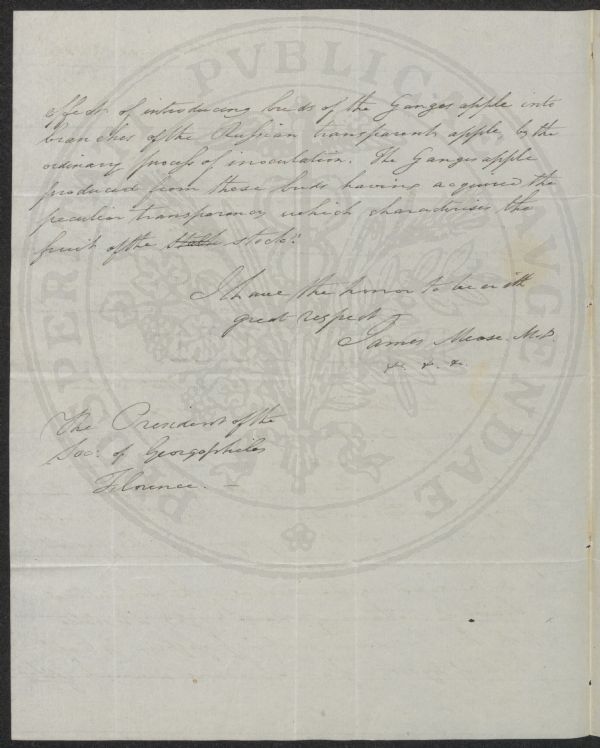 effects of introducing buds of the Ganges apple into
branches of the Russian transparent apple, by the
ordinary process of inoculation. The Ganges apple
produced from these buds having acquired the
peculiar transparency which characterises the
fruit of the stock".
I have the honor to be with
great respect
James Mease. M.D.
&. &. &.
The President of the
Soc: of Georgophiles
Florence. —
PROSPERITATI PUBLICAE AUGENDAE